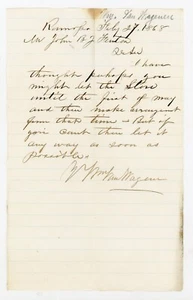 Wm Van Wagenen
Feby 27. 1868
Mr John B J
Dr Sir
I have
thought perhaps you
might let the Store
until the first of May
and then make arrangment
from that time - But if
you cant then let it
any way as soon as
possible
Yrs Wm Van Wagenen